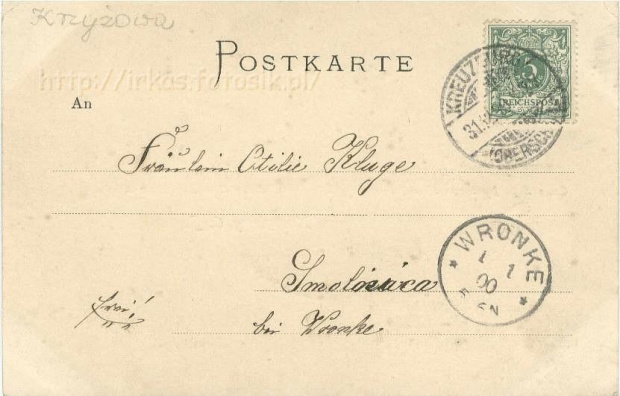 Krzyżowa
POSTKARTE
http://irkos.fotosik.pl/
An
5
REICHSPOST
KREUZBURG
31.
(OBERSCHL
Fräulein Otilie Kluge
* WRONKE *
1 1
00
Smolnica
bei Wronke
frei!